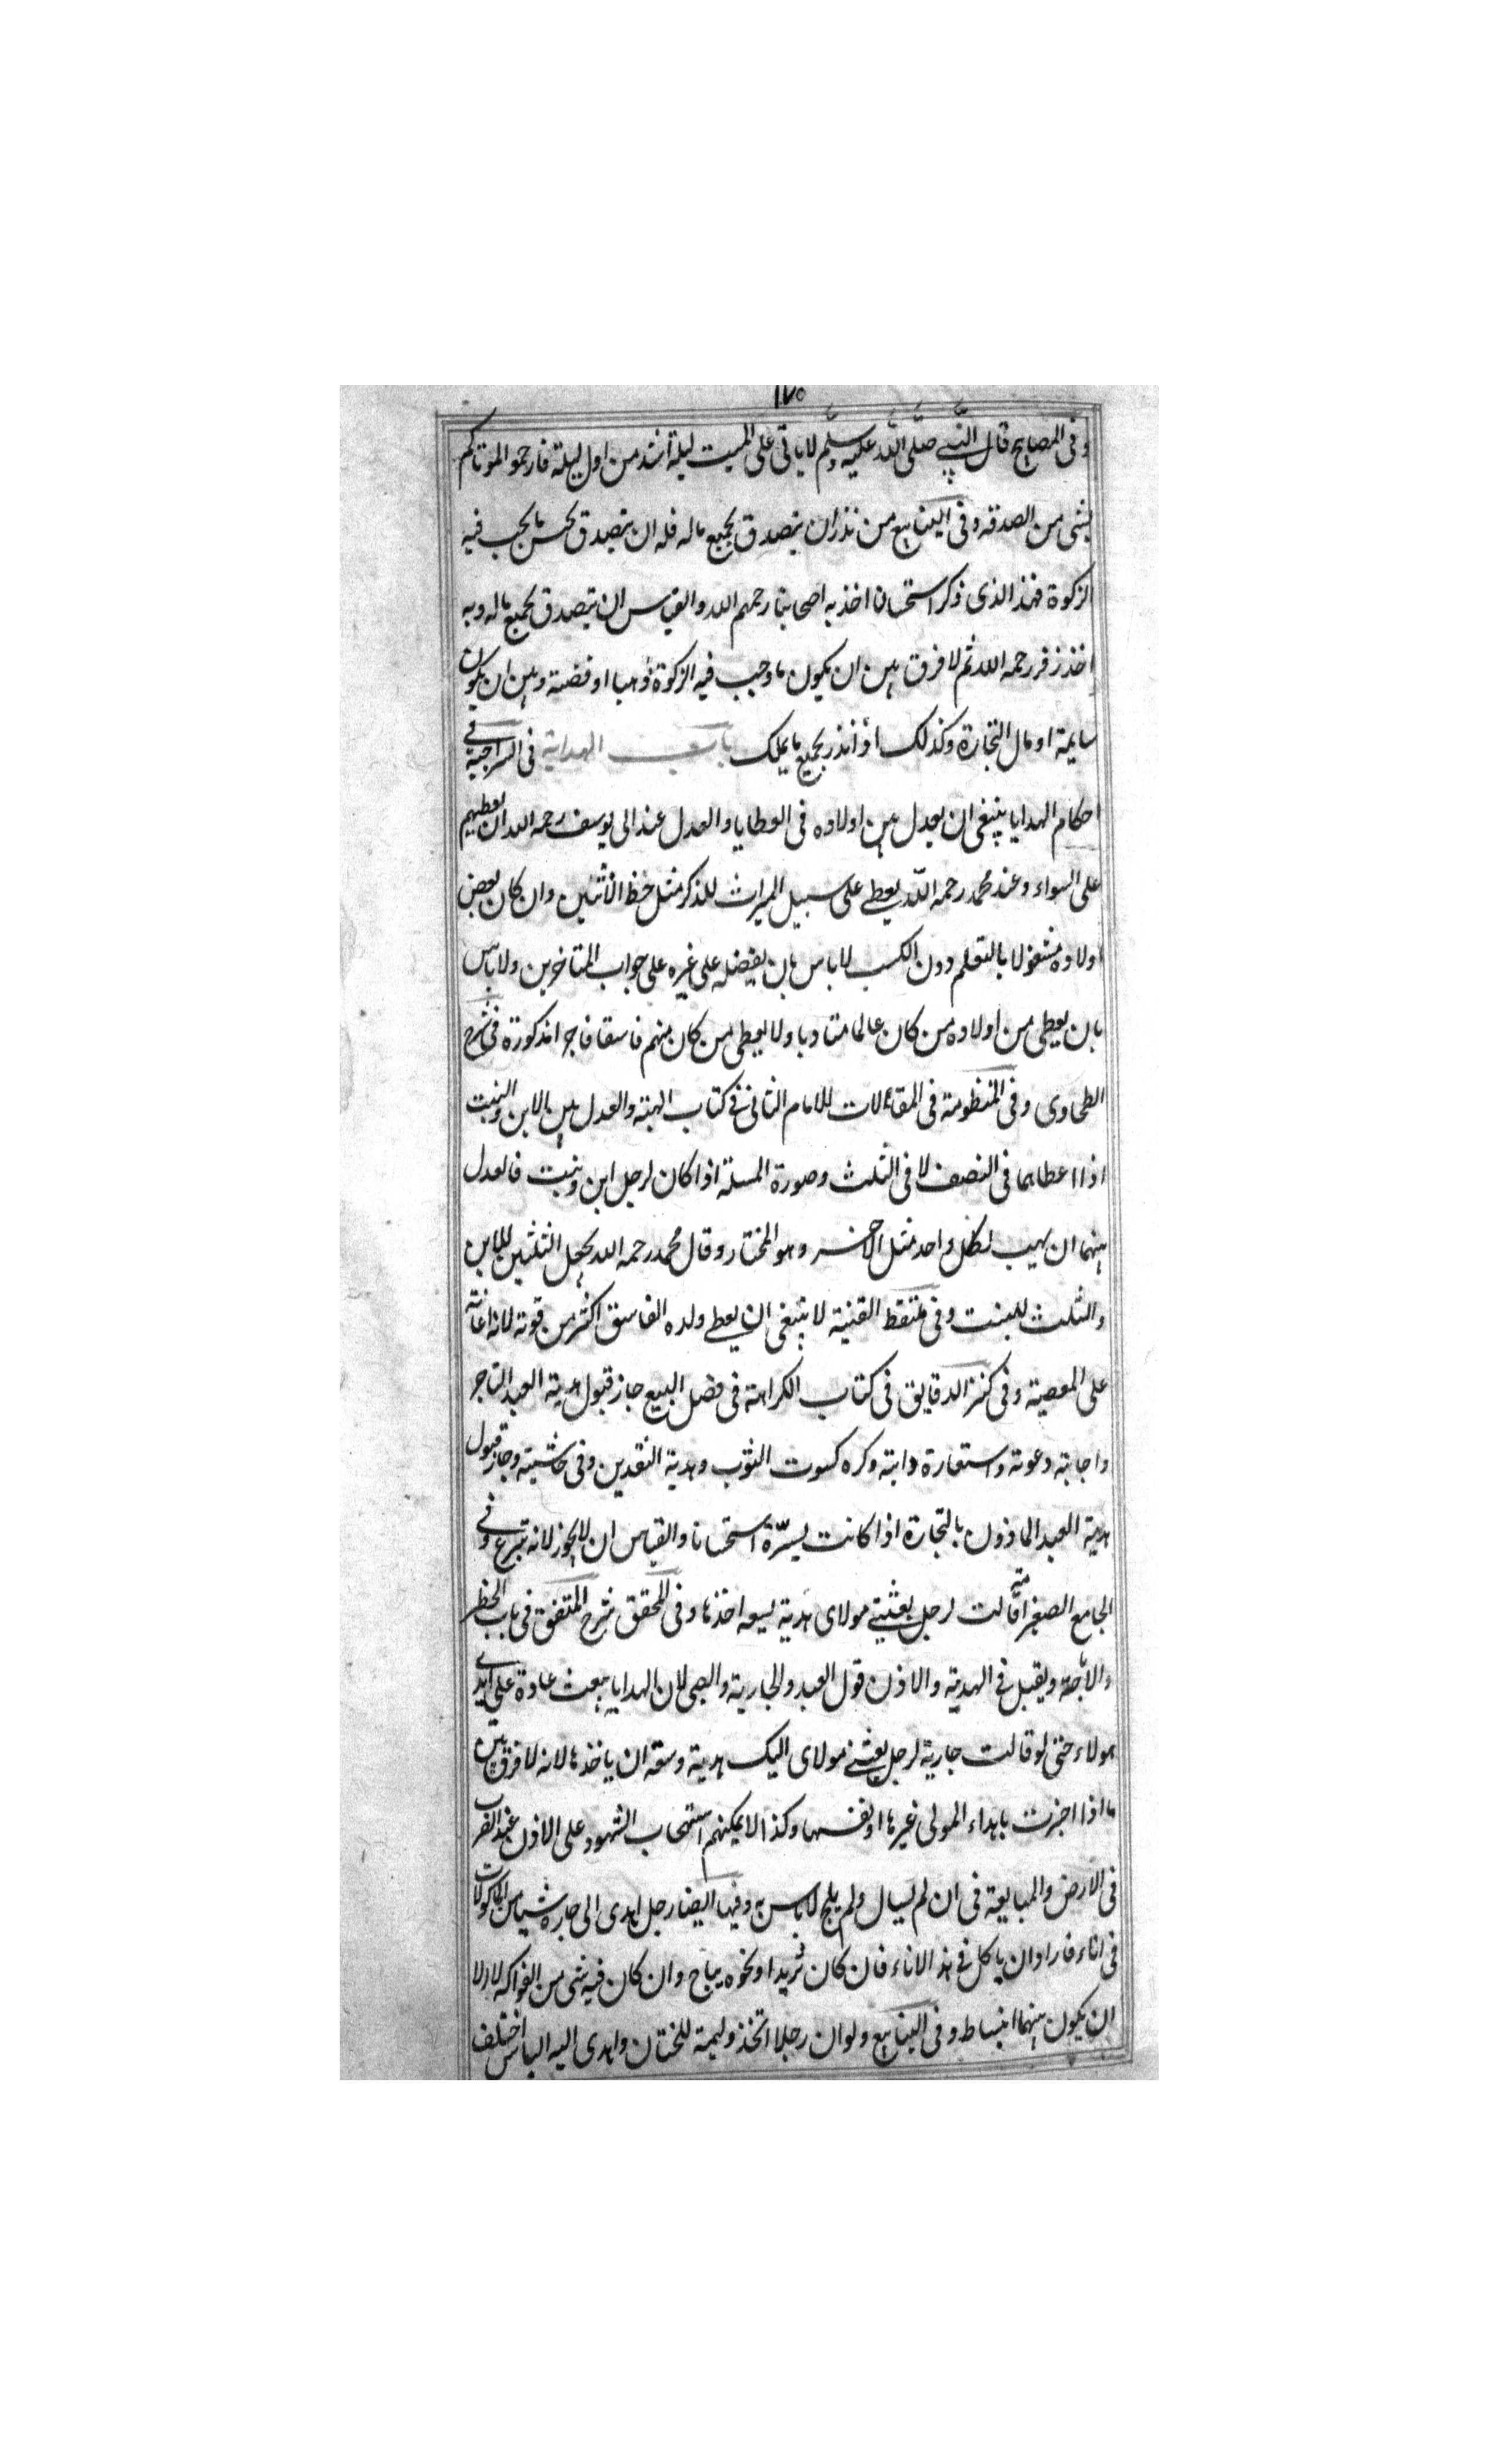 ١٧٥
وفى المصابيح قال النبى صلى الله عليه وسلم لا ياتى على الميت ليلة اشد من اول ليلة فارحموا الموتاكم
بشى من الصدقه وفى الينابيع من نذر ان يتصدق بجميع ماله فله ان يتصدق بجنس مايجب فيه
الزكوة فهذ الذى ذكر استحسان اخذ به اصحابنا رحمهم الله والقياس ان يتصدق بجميع ماله وبه
اخذ زفر رحمه الله ثم لا فرق بين ان يكون ماوجب فيه الزكوة ذهبا او فضته وبين ان يكون
سايمة او مال التجارة وكذلك اذ انذر بجميع مايملك باب الهداية فى السراجية فى
احكام الهدايا ينبغى ان يعدل بين اولاده فى العطايا والعدل عند ابى يوسف رحمه الله ان يعطيهم
على السواء وعند محمد رحمه الله يعطى على سبيل الميراث للذكر مثل حظ الانثيين وان كان بعض
اولاده مشغولا بالتعلم دون الكسب لاباس بان يفضله على غيره على جواب المتاخرين ولاباس
بان يعطى من اولاده من كان عالما متادبا ولا يعطى من كان منهم فاسقا فاجرا مذكورة فى شرح
الطحاوى وفى المنظومة فى المقالات للامام الثانى فى كتاب الهبته والعدل بين الابن والبنت
اذا اعطاهما فى النصف لا فى الثلث وصورة المسئلة اذا كان لرجل ابن وبنت فالعدل
بينهما ان يهب لكل واحد مثل الاخر وهو المختار وقال محمد رحمه الله يجعل الثلثين للابن
والثلث للبنت وفى ملتقط القنية لا ينبغى ان يعطى ولده الفاسق اكثر من قوته لانه اعانته
على المعصية وفى كنز الدقايق فى كتاب الكراهته فى فصل البيع جاز قبول هدية العبد التاجر
واجابته دعوته واستعارة دابته وكره كسوت الثوب وهدية النقدين وفى حاشيته وجاز قبول
هدية العبد الماذون بالتجارة اذا كانت يسيرة استحسانا والقياس ان لايجوز لانه تبرع وفى
الجامع الصغير امة قالت لرجل بعثنى مولاى هدية يسعه اخذها وفى المحقق شرح المتفق فى باب الحظر
والاباحة ويقبل فى الهدية والاذن قول العبد والجارية والصبى لان الهدايا يبعث عادة على ايدى
هولاء حتى لو قالت جارية لرجل بعثنى مولاى اليك هدية وسعه ان ياخذها لانه لا فرق بين
ما اذا اخبرت باهداء المولى غيرها او نفسها وكذا لايمكنهم استصحاب الشهود على الاذن عند الضرب
فى الارض والمبايعة فى ان لم يسال ولم يلح لاباس به وفيها ايضا رجل اهدى الى جاره شيئا من الماكولات
فى اناء فاراد ان ياكل فى هذ الاناء فان كان ثريدا ونحوه يباح وان كان فيه شى من الفواكه لا الا
ان يكون بينهما انبساط وفى الينابيع ولو ان رجلا اتخذ وليمة للختان واهدى اليه الناس اختلف